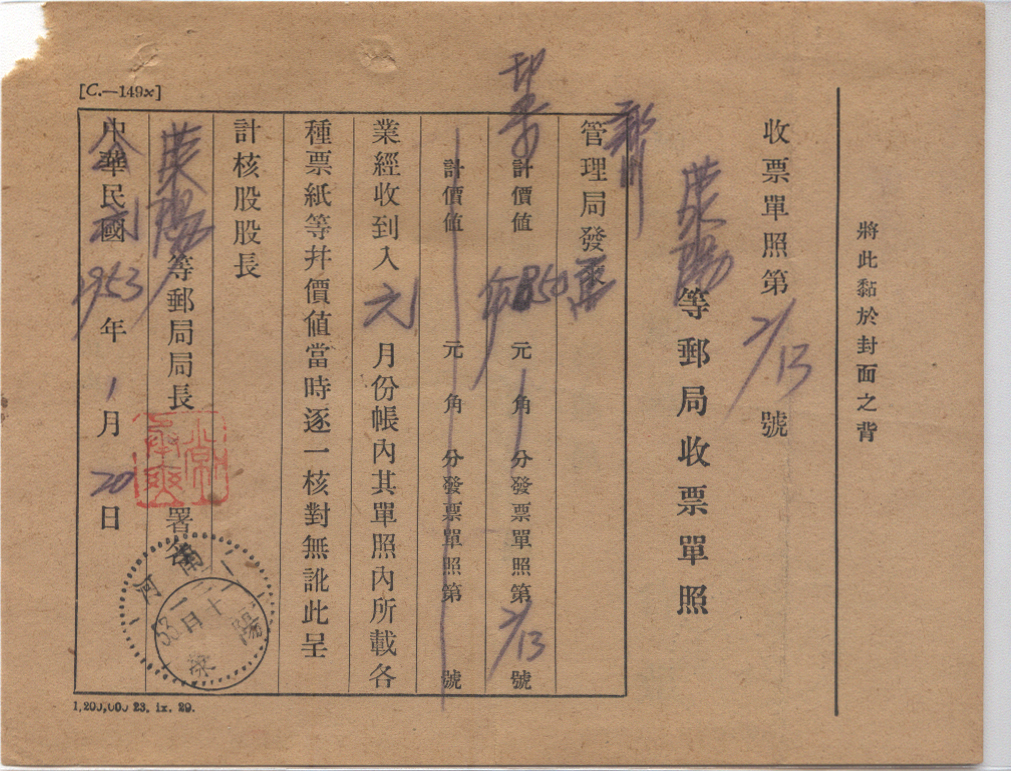 將此黏於封面之背
收票單照第2/13號
滎陽等郵局收票單照
鄭州
管理局發票
印花
計價值 850 元角分發票單照第2/13號
計價值 元角分發票單照第 號
業經收到入元月份帳內其單照內所載各
種票紙等幷價值當時逐一核對無訛此呈
計核股股長
滎陽等郵局局長 署名
中華民國1953年1月20日
[C.—149x]
河南
滎陽
1,200,000 23. ix. 29.